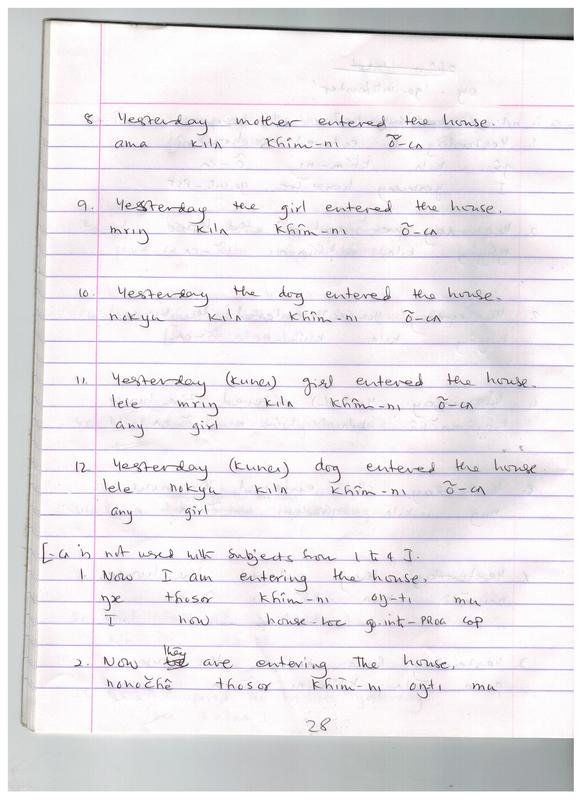 8. Yesterday mother entered the house.
ama kılʌ khîm-nı õ-cʌ
9. Yesterday the girl entered the house.
mrıŋ kılʌ khîm-nı õ-cʌ
10. Yesterday the dog entered the house.
nokyu kılʌ khîm-nı õ-cʌ
11. Yesterday (kunai) girl entered the house.
lele mrıŋ kılʌ khîm-nı õ-cʌ
any girl
12 Yesterday (kunai) dog entered the house
lele nokyu kılʌ khîm-nı õ-cʌ
any girl
[-cʌ is not used with subjects from 1 to 4].
1. Now I am entering the house.
thosor khîm-nı oŋ-tı mu
I now house-LOC go.int-PROG COP
2. Now they are entering the house.
nonočhê thosor khîm-nı oŋtı mu
28